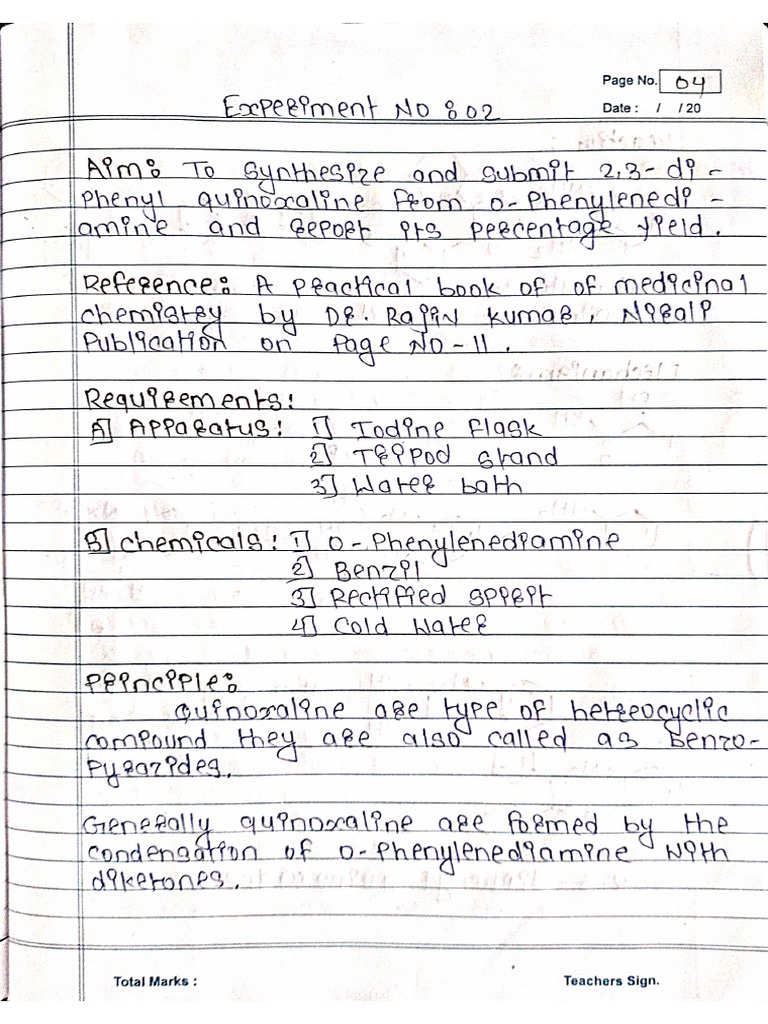 Page No. 04
Date : / / 20
Experiment No : 02
Aim: To synthesize and submit 2,3-di-
Phenyl quinoxaline from o-Phenylenedi-
amine and report its percentage yield.
Reference: A practical book of of medicinal
chemistry by Dr. Rajiv Kumar, Nirali
Publication on Page No-11.
Requirements:
A] Apparatus: 1] Iodine flask
2] Tripod stand
3] Water bath
B] Chemicals: 1] o-Phenylenediamine
2] Benzil
3] Rectified spirit
4] Cold Water
Principle:
Quinoxaline are type of heterocyclic
compound they are also called as Benzo-
Pyrazides.
Generally quinoxaline are formed by the
condensation of o-Phenylenediamine with
diketones.
Total Marks :
Teachers Sign.